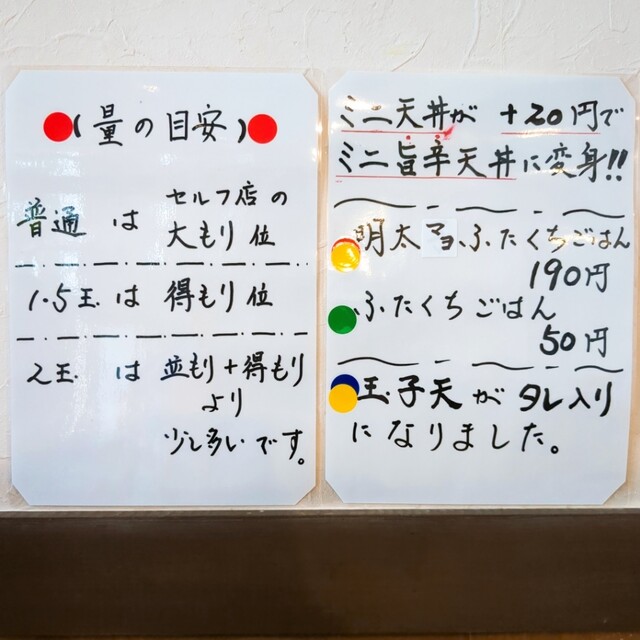 (量の目安)
普通 は セルフ店の
大もり位
1.5玉 は 得もり位
2玉 は 並もり+得もり
より
少し多いです。
ミニ天丼が +20円で
ミニ旨辛天丼に変身!!
明太マヨふたくちごはん
190円
ふたくちごはん
50円
玉子天が タレ入り
になりました。